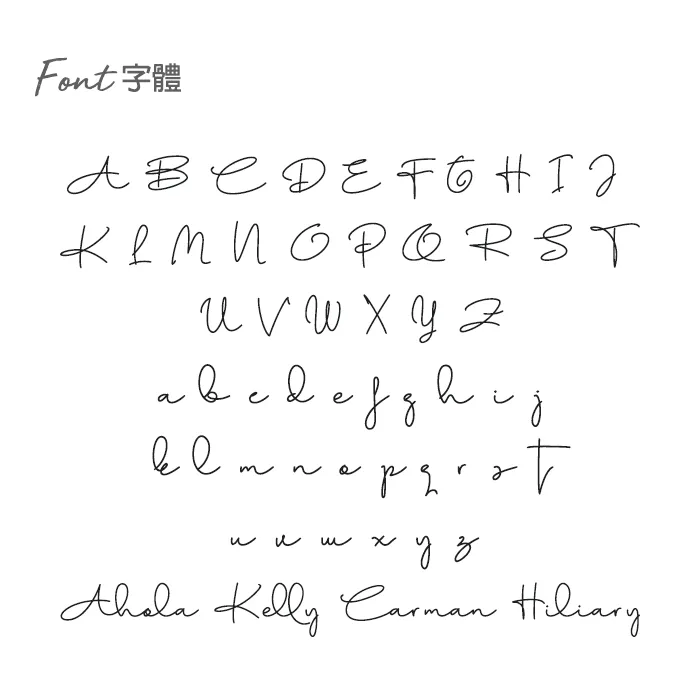 Font 字體
A B C D E F G H I J
K L M N O P Q R S T
U V W X Y Z
a b c d e f g h i j
k l m n o p q r s t
u v w x y z
Ahola Kelly Carman Hiliary